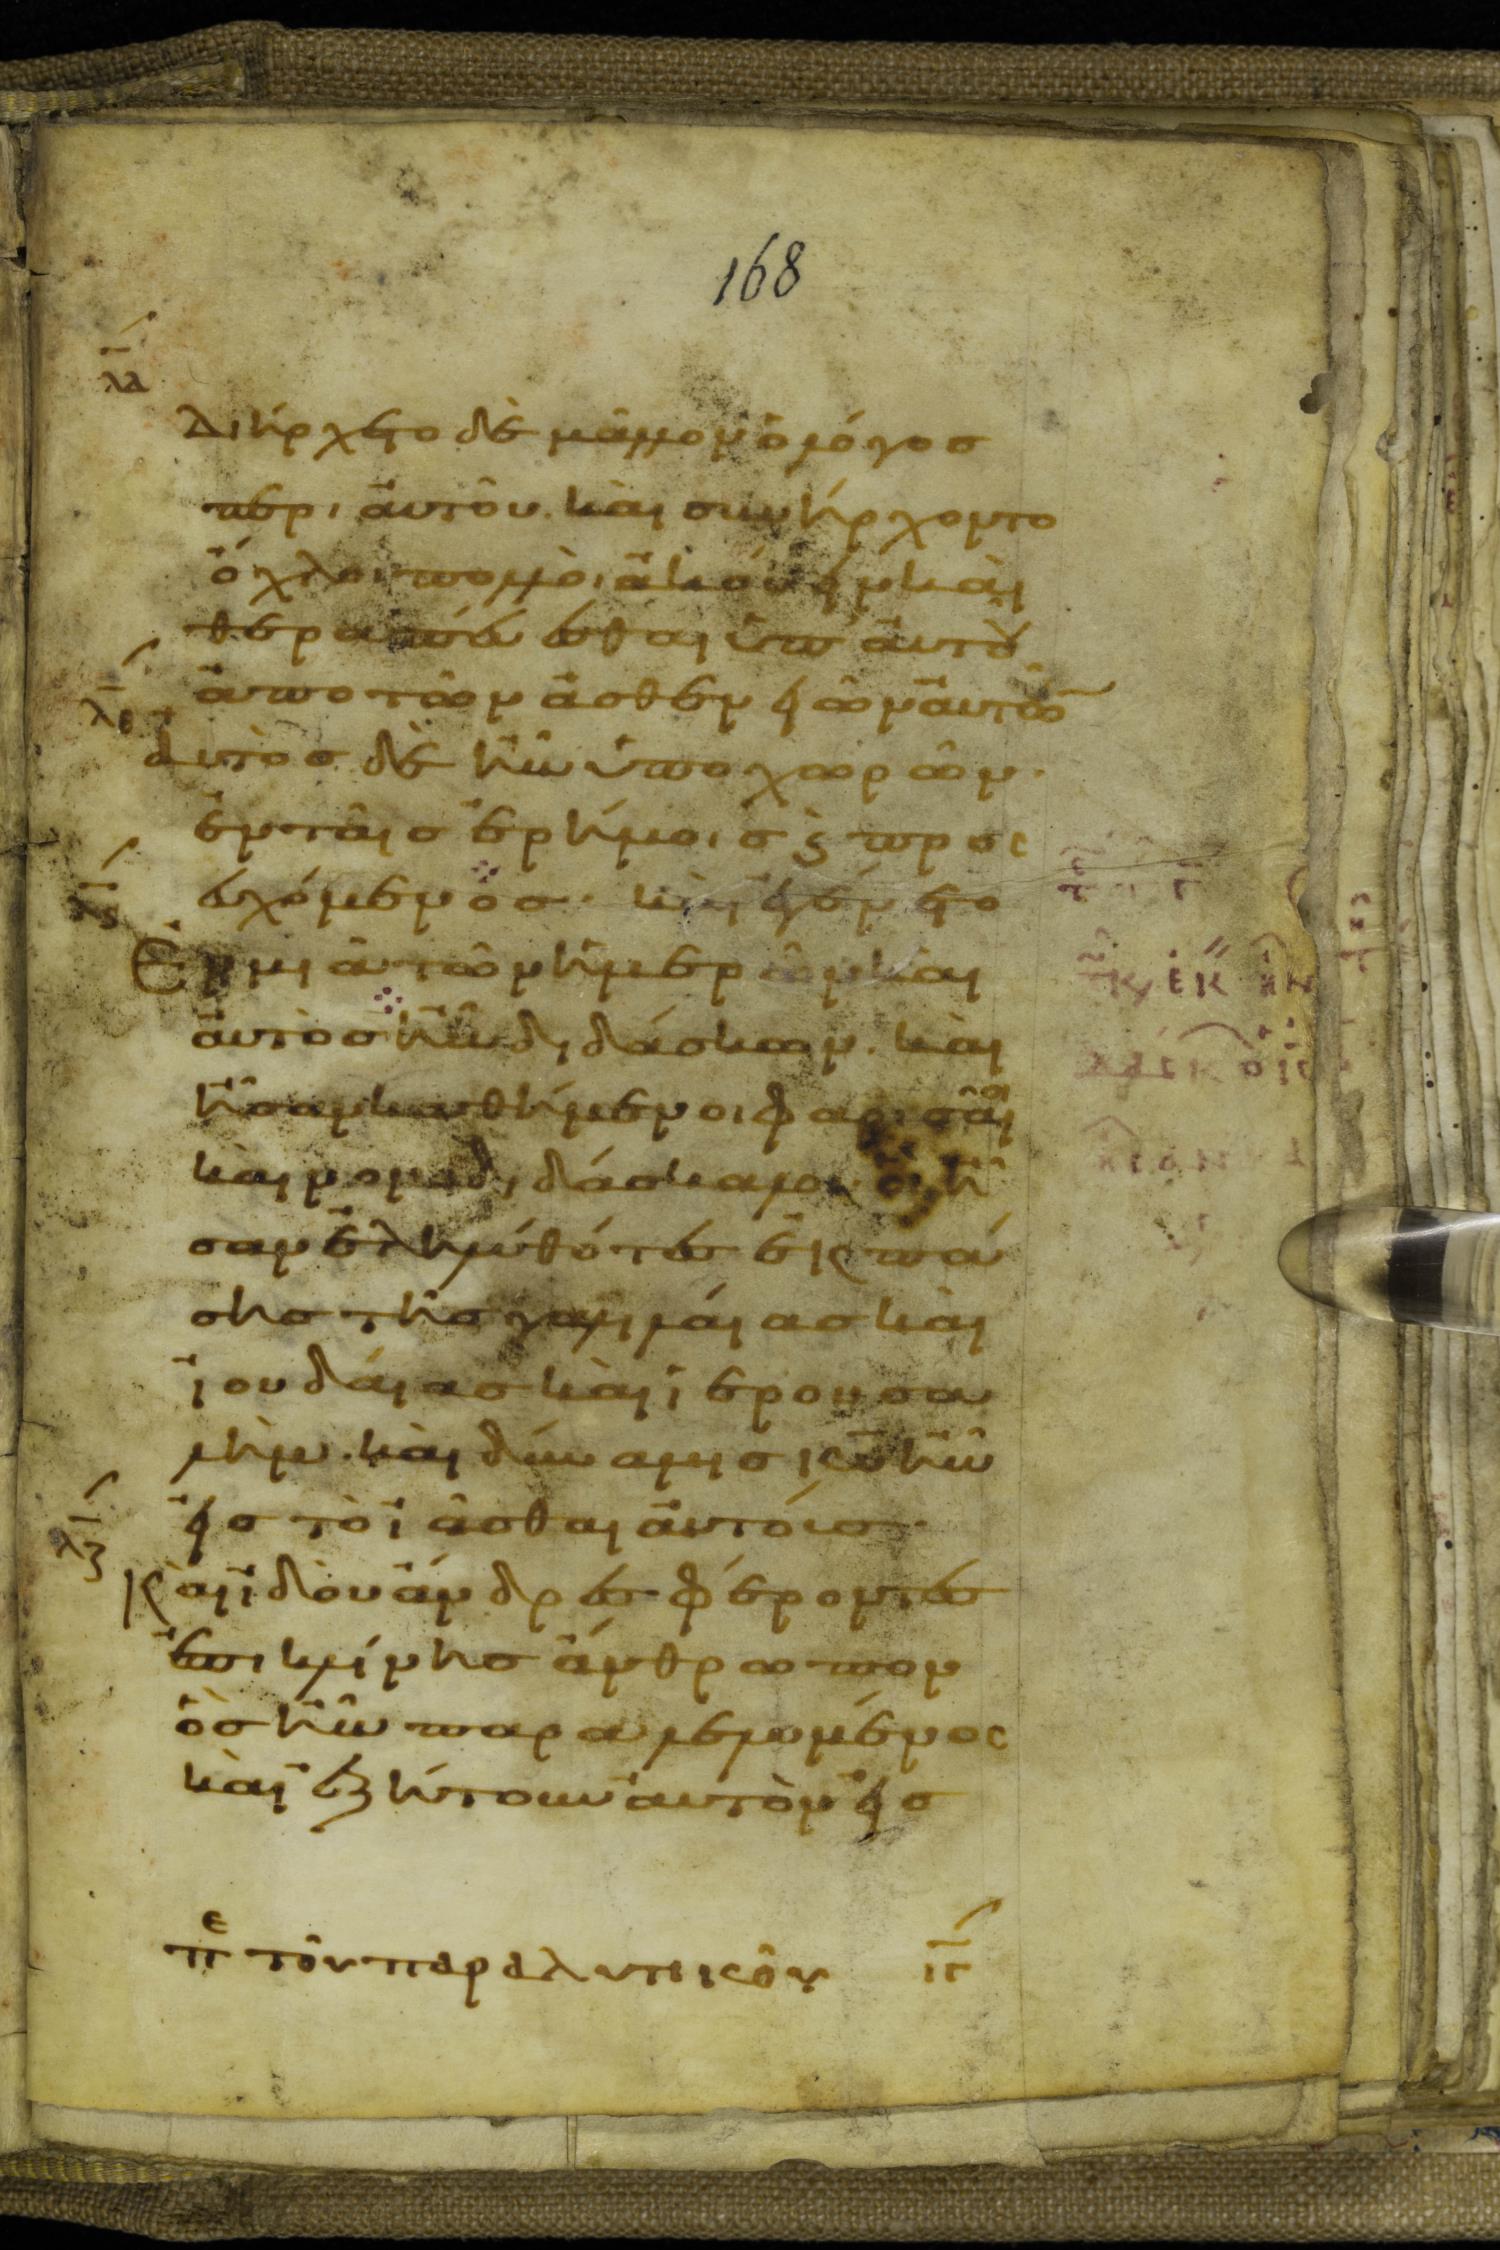 168
λδ
Διήρχετο δὲ μᾶλλον ὁ λόγος
περι αὐτοῦ. καὶ συνήρχοντο
ὄχλοι πολλοὶ ἀκούειν καὶ
θεραπεύεσθαι ὑπ αὐτοῦ
ἀπο τῶν ἀσθενειῶν αὐτῶ̅
λε
αυτὸς δὲ ἦν ὑποχωρῶν·
ἐν ταῖς ἐρήμοις ϗ προσ
ευχόμενος· καὶ ἐγένετο
λϛ
Ἐν μια τῶν ἡμερῶν καὶ
αὐτὸς ἦν διδάσκων. καὶ
ἦσαν καθήμενοι φαρισαῖοι
καὶ νομοδιδάσκαλοι· οἳ ἦ
σαν ἐληλυθότες ἐκ πά
σης τῆς γαλιλαίας καὶ
ἰουδαίας καὶ ιερουσα
λὴμ. καὶ δύναμις κ̅υ̅ ἦν
εἰς τὸ ἰᾶσθαι αὐτούς·
λζ
Κὰι ἰδοὺ ἄνδρες φέροντες
ἐπι κλίνης ἄνθρωπον
ὃς ἦν παραλελυμένος
καὶ ἐζήτουν αὐτὸν εἰσ
πε τοῦ παραλυτικοῦ ιγ